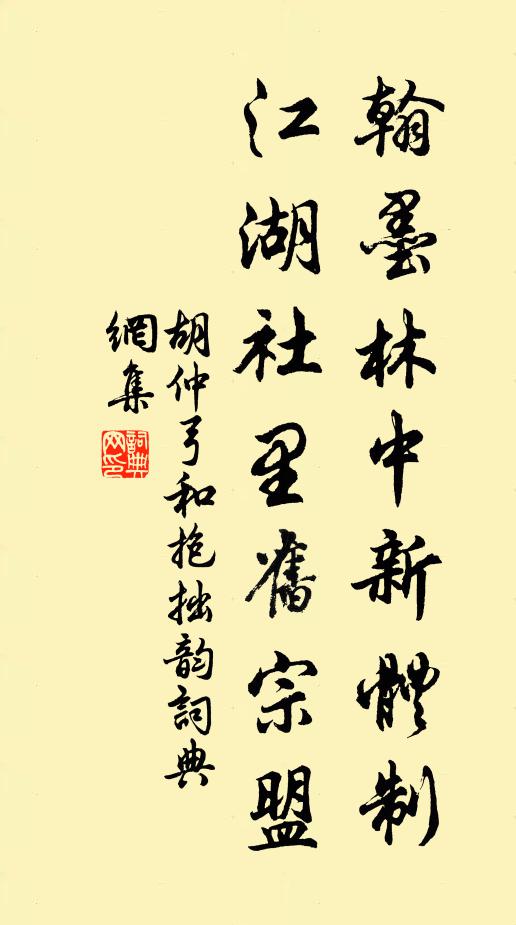 翰墨林中新體制
江湖社里舊宗盟
胡仲弓和抱拙韵詞典
網集
詞典網印